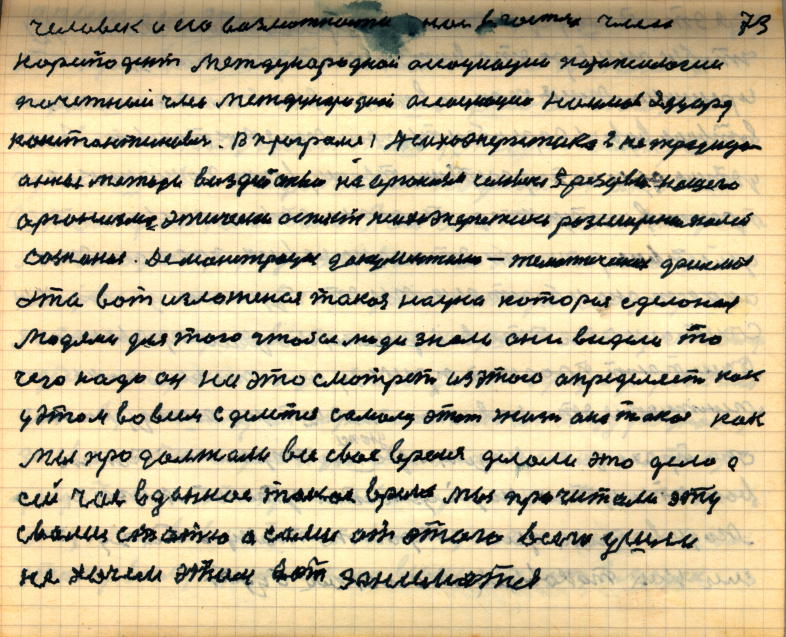 человек и его возможности у нас в гостях член 73
коресподент международной ассоциации психологии
почетный член международной ассоциации Наумов Эдуард
константинович. В програме 1 психоэнергетика 2 нетрадици
онные методы воздействия на организм человека 3 резервы нашего
организма этически аспект психоэнергетики расширение полей
сознания. Демонстрация документально – тематических фильмов
эта вот изложеная такая наука которая сделоная
людями для того чтобы люди знали они видели то
чего надо он на это смотреть из этого определять как
у этом во всем сделется самому этот жизн она такая как
мы продолжали все свое время делали это дело а
сей час в данное такое время мы прочитали эту
свами статю а сами от этого всего ушли
не хочем этим вот заниматся